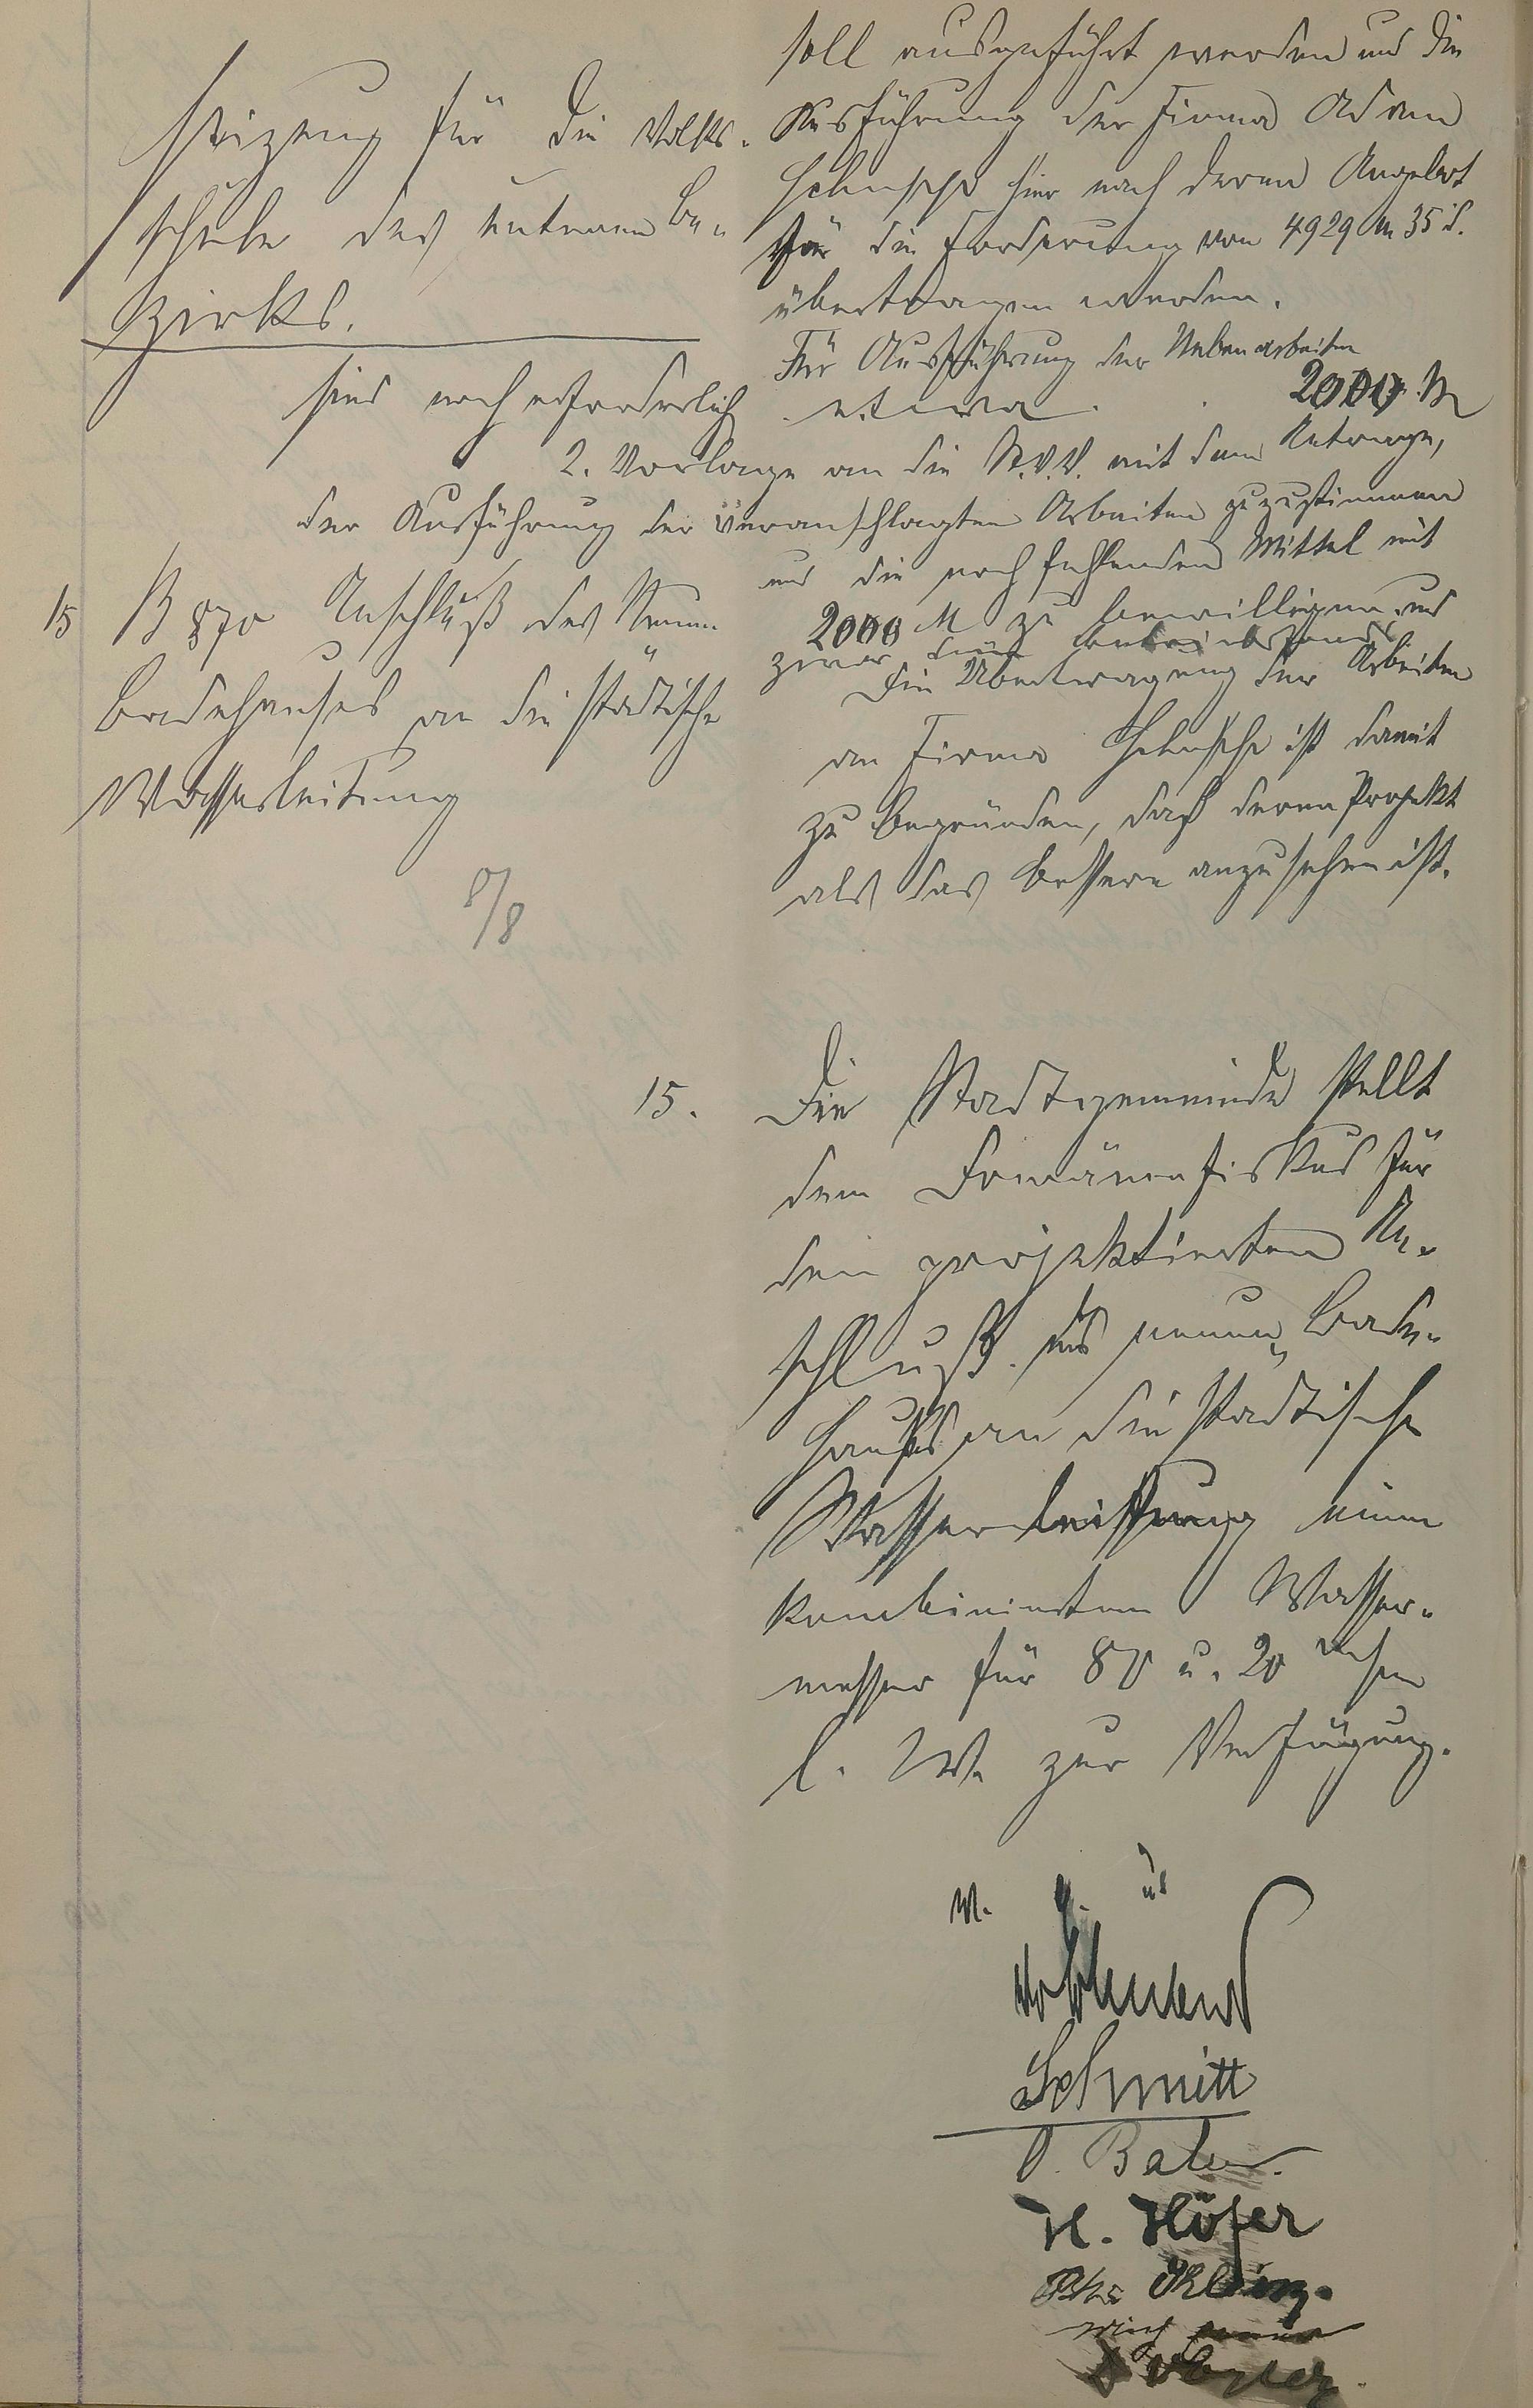 heizung für die Volks-
schule des unteren Be-
zirks.
soll ausgeführt werden und die
Ausführung der Firma Adam
hier nach deren Angebot
für die Forderung von 4929 M 35 d.
übertragen werden.
Für Ausführung der Nebenarbeiten
sind noch erforderlich etwa 2000 M
2. Vorlage an die St.V.V. mit dem Antrage,
der Ausführung der veranschlagten Arbeiten zuzustimmen
und die noch fehlenden Mittel mit
2000 M zu bewilligen und
zwar
Die Übertragung der Arbeiten
an Firma ist damit
zu begründen, daß deren Projekt
als das bessere anzusehen ist.
15 B 870 Anschluß des neuen
Badehauses an die städtische
Wasserleitung
8/8
15. Die Stadtgemeinde stellt
dem Domänenfiskus für
den projektierten An-
schluß des neuen Bade-
hauses an die städtische
Wasserleitung einen
kombinierten Wasser-
messer für 80 u. 20 mm
l. W. zur Verfügung.
Schmitt
H. Höfer